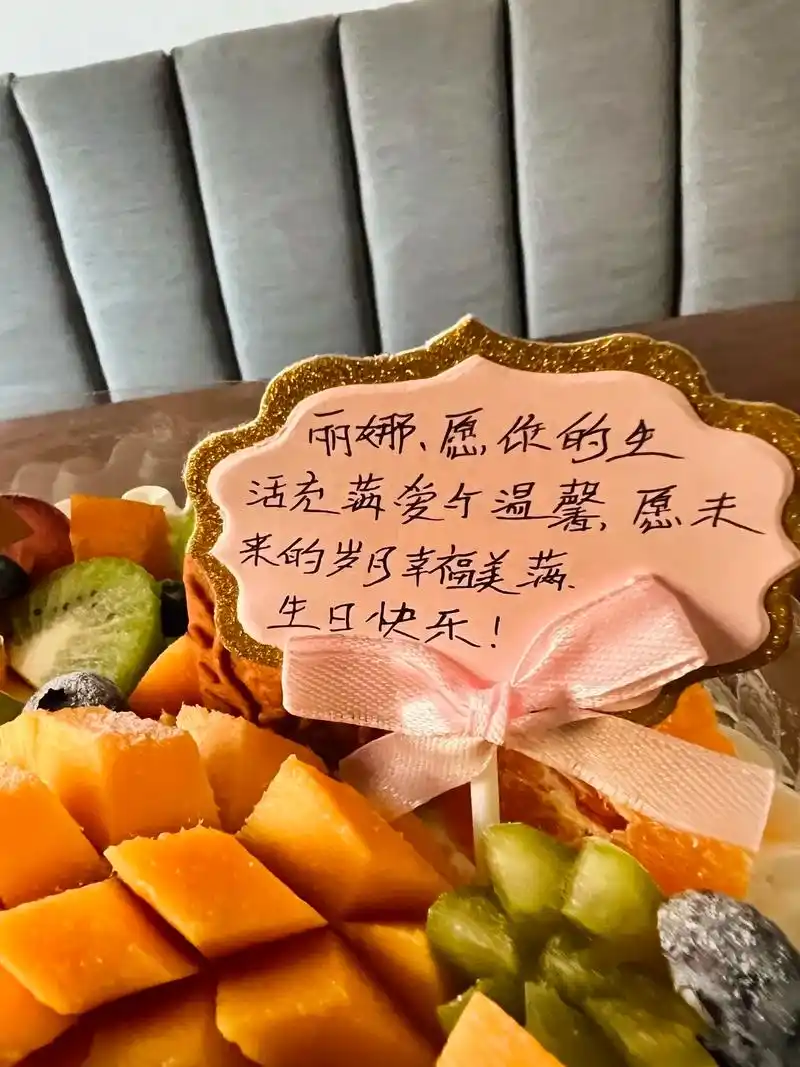 丽娜、愿你的生
活充满爱与温馨、愿未
来的岁月幸福美满、
生日快乐！